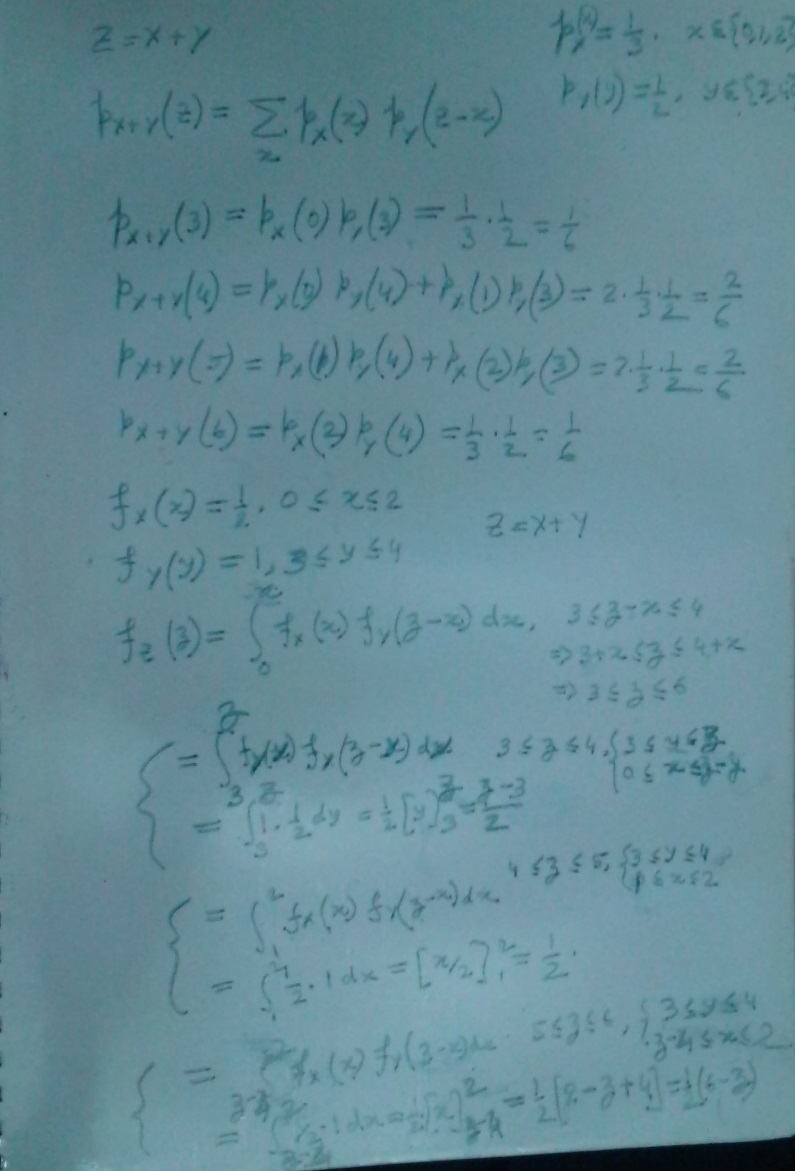 z = x + y    p_x(x) = 1/3, x ∈ {0,1,2}
p_{x+y}(z) = ∑_x p_x(x) p_y(z-x)    p_y(y) = 1/2, y ∈ {3,4}
p_{x+y}(3) = p_x(0) p_y(3) = 1/3 · 1/2 = 1/6
p_{x+y}(4) = p_x(0) p_y(4) + p_x(1) p_y(3) = 2 · 1/3 · 1/2 = 2/6
p_{x+y}(5) = p_x(1) p_y(4) + p_x(2) p_y(3) = 2 · 1/3 · 1/2 = 2/6
p_{x+y}(6) = p_x(2) p_y(4) = 1/3 · 1/2 = 1/6
f_x(x) = 1/2, 0 ≤ x ≤ 2    z = x + y
f_y(y) = 1, 3 ≤ y ≤ 4
f_z(z) = ∫_0^x f_x(x) f_y(z-x) dx,    3 ≤ z-x ≤ 4
⇒ 3+x ≤ z ≤ 4+x
⇒ 3 ≤ z ≤ 6
{ = ∫_3^z f_y(y) f_x(z-y) dy    3 ≤ z ≤ 4, { 3 ≤ y ≤ z
0 ≤ x ≤ z-y
= ∫_3^z 1 · 1/2 dy = 1/2 [y]_3^z = (z-3)/2
4 ≤ z ≤ 5, { 3 ≤ y ≤ 4
1 ≤ x ≤ 2
{ = ∫_1^2 f_x(x) f_y(z-x) dx
= ∫_1^2 1/2 · 1 dx = [x/2]_1^2 = 1/2.
{ = ∫_{z-4}^2 f_x(x) f_y(z-x) dx    5 ≤ z ≤ 6, { 3 ≤ y ≤ 4
z-4 ≤ x ≤ 2
= ∫_{z-4}^2 1/2 · 1 dx = 1/2 [x]_{z-4}^2 = 1/2 [2-z+4] = 1/2 (6-z)